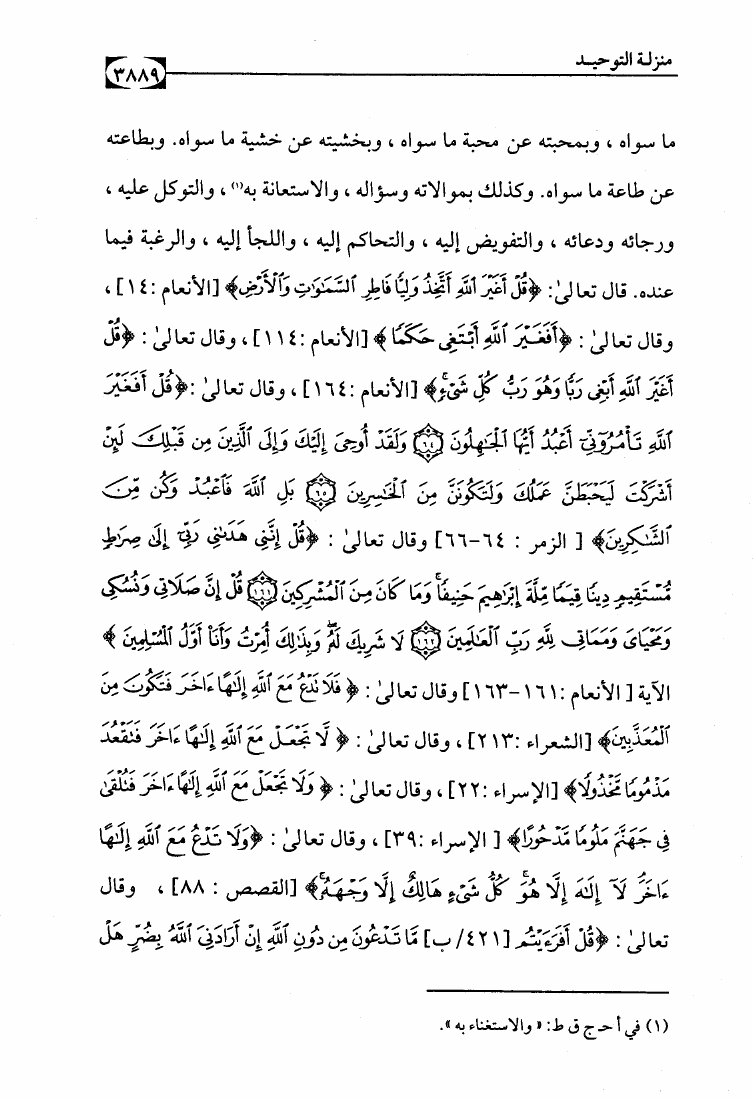 منزلة التوحيد
٣٨٨٩
ما سواه ، وبمحبته عن محبة ما سواه ، وبخشيته عن خشية ما سواه. وبطاعته
عن طاعة ما سواه. وكذلك بموالاته وسؤاله ، والاستعانة به(١) ، والتوكل عليه ،
ورجائه ودعائه ، والتفويض إليه ، والتحاكم إليه ، واللجأ إليه ، والرغبة فيما
عنده. قال تعالىٰ: ﴿قُلْ أَغَيْرَ ٱللَّهِ أَتَّخِذُ وَلِيًّا فَاطِرِ ٱلسَّمَٰوَٰتِ وَٱلْأَرْضِ﴾ [الأنعام :١٤] ،
وقال تعالىٰ : ﴿أَفَغَيْرَ ٱللَّهِ أَبْتَغِى حَكَمًا ﴾ [الأنعام :١١٤] ، وقال تعالىٰ : ﴿قُلْ
أَغَيْرَ ٱللَّهِ أَبْغِى رَبًّا وَهُوَ رَبُّ كُلِّ شَىْءٍ﴾ [الأنعام :١٦٤] ، وقال تعالىٰ :﴿قُلْ أَفَغَيْرَ
ٱللَّهِ تَأْمُرُوٓنِّىٓ أَعْبُدُ أَيُّهَا ٱلْجَٰهِلُونَ ۝٦٤ وَلَقَدْ أُوحِىَ إِلَيْكَ وَإِلَى ٱلَّذِينَ مِن قَبْلِكَ لَئِنْ
أَشْرَكْتَ لَيَحْبَطَنَّ عَمَلُكَ وَلَتَكُونَنَّ مِنَ ٱلْخَٰسِرِينَ ۝٦٥ بَلِ ٱللَّهَ فَٱعْبُدْ وَكُن مِّنَ
ٱلشَّٰكِرِينَ﴾ [ الزمر : ٦٤-٦٦] وقال تعالىٰ : ﴿قُلْ إِنَّنِى هَدَىٰنِى رَبِّىٓ إِلَىٰ صِرَٰطٍ
مُّسْتَقِيمٍ دِينًا قِيَمًا مِّلَّةَ إِبْرَٰهِيمَ حَنِيفًا ۚ وَمَا كَانَ مِنَ ٱلْمُشْرِكِينَ ۝١٦١ قُلْ إِنَّ صَلَاتِى وَنُسُكِى
وَمَحْيَاىَ وَمَمَاتِى لِلَّهِ رَبِّ ٱلْعَٰلَمِينَ ۝١٦٢ لَا شَرِيكَ لَهُۥ ۖ وَبِذَٰلِكَ أُمِرْتُ وَأَنَا۠ أَوَّلُ ٱلْمُسْلِمِينَ ﴾
الآية [ الأنعام :١٦١-١٦٣] وقال تعالىٰ : ﴿ فَلَا تَدْعُ مَعَ ٱللَّهِ إِلَٰهًا ءَاخَرَ فَتَكُونَ مِنَ
ٱلْمُعَذَّبِينَ﴾ [الشعراء :٢١٣] ، وقال تعالىٰ : ﴿ لَّا تَجْعَلْ مَعَ ٱللَّهِ إِلَٰهًا ءَاخَرَ فَتَقْعُدَ
مَذْمُومًا مَّخْذُولًا﴾ [الإسراء :٢٢] ، وقال تعالىٰ : ﴿ وَلَا تَجْعَلْ مَعَ ٱللَّهِ إِلَٰهًا ءَاخَرَ فَتُلْقَىٰ
فِى جَهَنَّمَ مَلُومًا مَّدْحُورًا﴾ [ الإسراء :٣٩] ، وقال تعالىٰ : ﴿وَلَا تَدْعُ مَعَ ٱللَّهِ إِلَٰهًا
ءَاخَرَ ۘ لَآ إِلَٰهَ إِلَّا هُوَ ۚ كُلُّ شَىْءٍ هَالِكٌ إِلَّا وَجْهَهُۥ ۚ﴾ [القصص : ٨٨] ، وقال
تعالىٰ : ﴿قُلْ أَفَرَءَيْتُم [٤٢١/ ب] مَّا تَدْعُونَ مِن دُونِ ٱللَّهِ إِنْ أَرَادَنِىَ ٱللَّهُ بِضُرٍّ هَلْ
(١) في أ حـ ج ق ط: « والاستغناء به ».